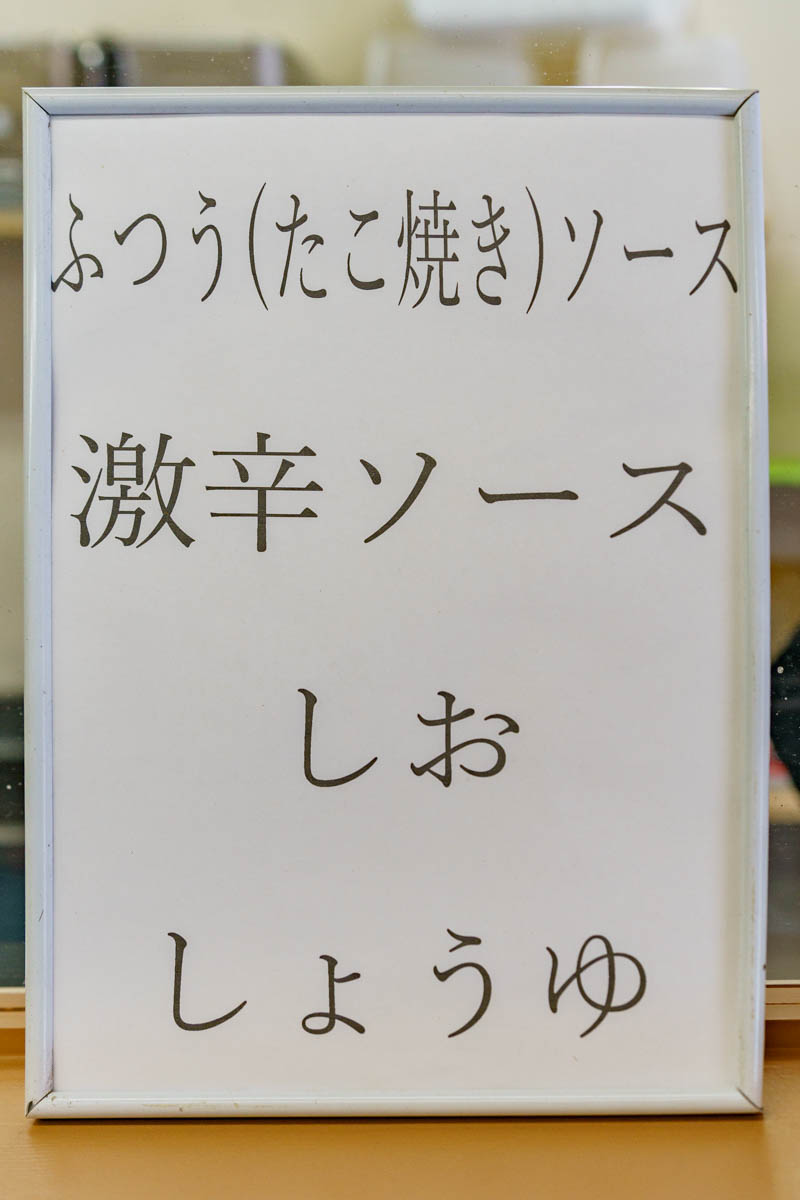 ふつう(たこ焼き)ソース
激辛ソース
しお
しょうゆ